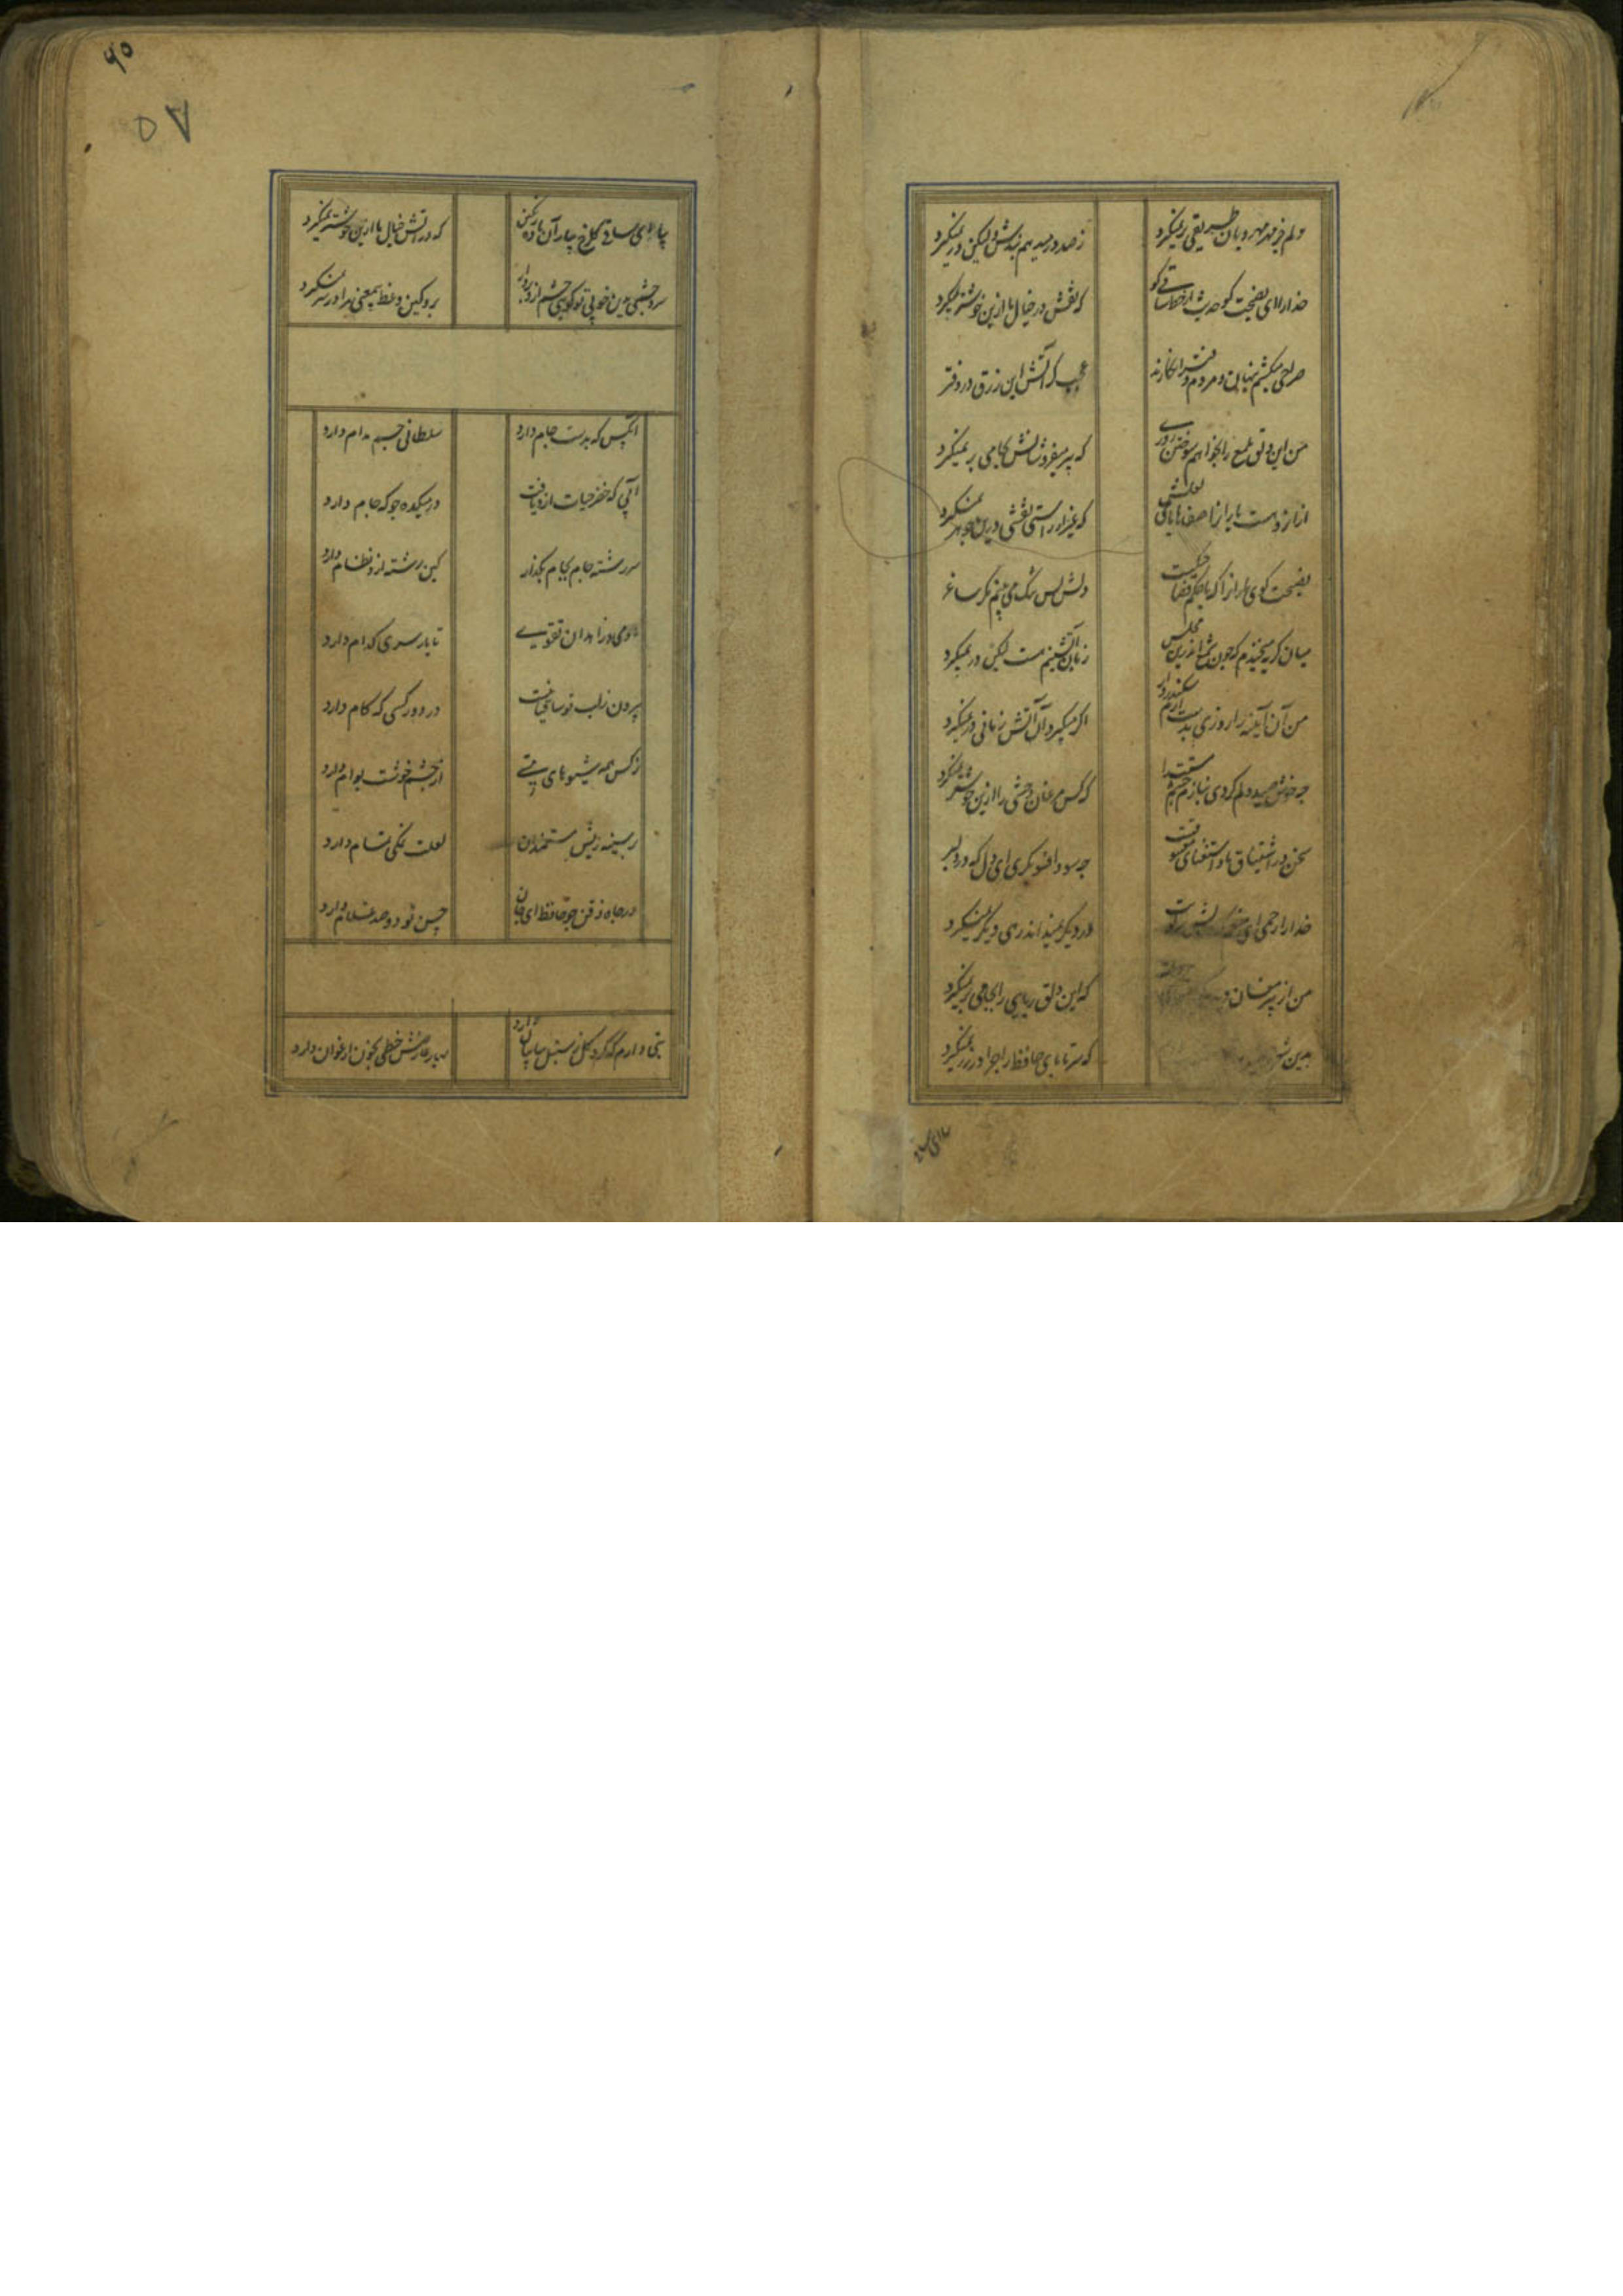 دلم جز مهر مهرویان طریقی بر نمیگیرد
ز هر در میدهم پندش ولیکن در نمیگیرد
خدا را ای نصیحت کو حدیث از خط ساقی کو
که نقشی در خیال ما ازین خوشتر نمیگیرد
صراحی میکشم پنهان و مردم دفتر انکارند
عجب کر آتش این زرق در دفتر
من این دلق ملمع را بخواهم سوختن روزی
که پیر میفروشانش بجامی بر نمیگیرد
از آن رو هست یاران را صفاها با می لعلش
که غیر از راستی نقشی درین جوهر نمیگیرد
نصیحت کوی رندانرا که با حکم قضا جنکست
دلش بس تنک می بینم مکر ساغر
میان کریه میخندم که چون شمع اندرین مجلس
زبان آتشینم هست لیکن در نمیگیرد
من آن آینه را روزی بدست آرم سکندروار
اکر میگیرد آن آتش زمانی ور نمیگیرد
چه خوش صید دلم کردی بنازم چشم مستت را
که کس مرغان وحشی را ازین خوشتر نمیگیرد
سخن در اشتیاق ما و استغنای معشوقست
چه سود افسونکری ای دل که در دلبر
خدا را رحمی ای منعم که درویش سر کویت
در دیگر نمیداند رهی دیگر نمیگیرد
من از پیر مغان
که این دلق ریایی را بجامی بر نمیگیرد
بدین شعر
که سر تا پای حافظ را چرا در زر نمیگیرد
بیا ای سا
۹۵
۵۷
بیا ای ساقی کلرخ بیار آن باده رنکین
که در نقش خیال ما ازین خوشتر نمیگیرد
سر و چشمی بدین خوبی تو کویی چشم ازو بردار
برو کین وعظ بیمعنی مرا در سر نمیگیرد
آنکس که بدست جام دارد
سلطانی جم مدام دارد
آبی که خضر حیات ازو یافت
در میکده جو که جام دارد
سر رشته جام بجام بگذار
کین رشته ازو نظام دارد
ما و می و زاهدان تقوی
تا یار سری کدام دارد
بیرون ز لب تو ساقیا نیست
در دور کسی که کام دارد
نرکس همه شیوهای مستی
از چشم خوشت بوام دارد
بر سینه ریش مستمندان
لعلت نمکی تمام دارد
در چاه ذقن چو حافظ ای جان
حسن تو دو صد غلام دارد
بتی دارم که کرد کل ز سنبل سایبان دارد
بهار عارضش خطی بخون ارغوان دارد